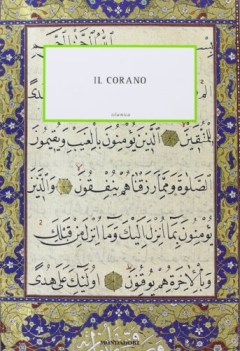 IL CORANO
لِلْمُتَّقِينَ الَّذِينَ يُؤْمِنُونَ بِالْغَيْبِ وَيُقِيمُونَ
الصَّلٰوةَ وَمِمَّا رَزَقْنَاهُمْ يُنْفِقُونَ وَالَّذِينَ
يُؤْمِنُونَ بِمَا أُنْزِلَ إِلَيْكَ وَمَا أُنْزِلَ مِنْ قَبْلِكَ
وَبِالْاٰخِرَةِ هُمْ يُوقِنُونَ أُولٰئِكَ عَلٰى هُدًى
MONDADORI